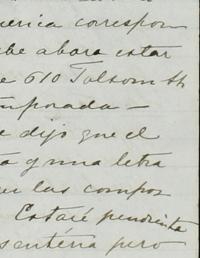 erica correspon
be ahora estar
e 610 Folsom St
emporada —
e dijo que el
a y una letra
las compos
Estaré pendiente
sentéria pero